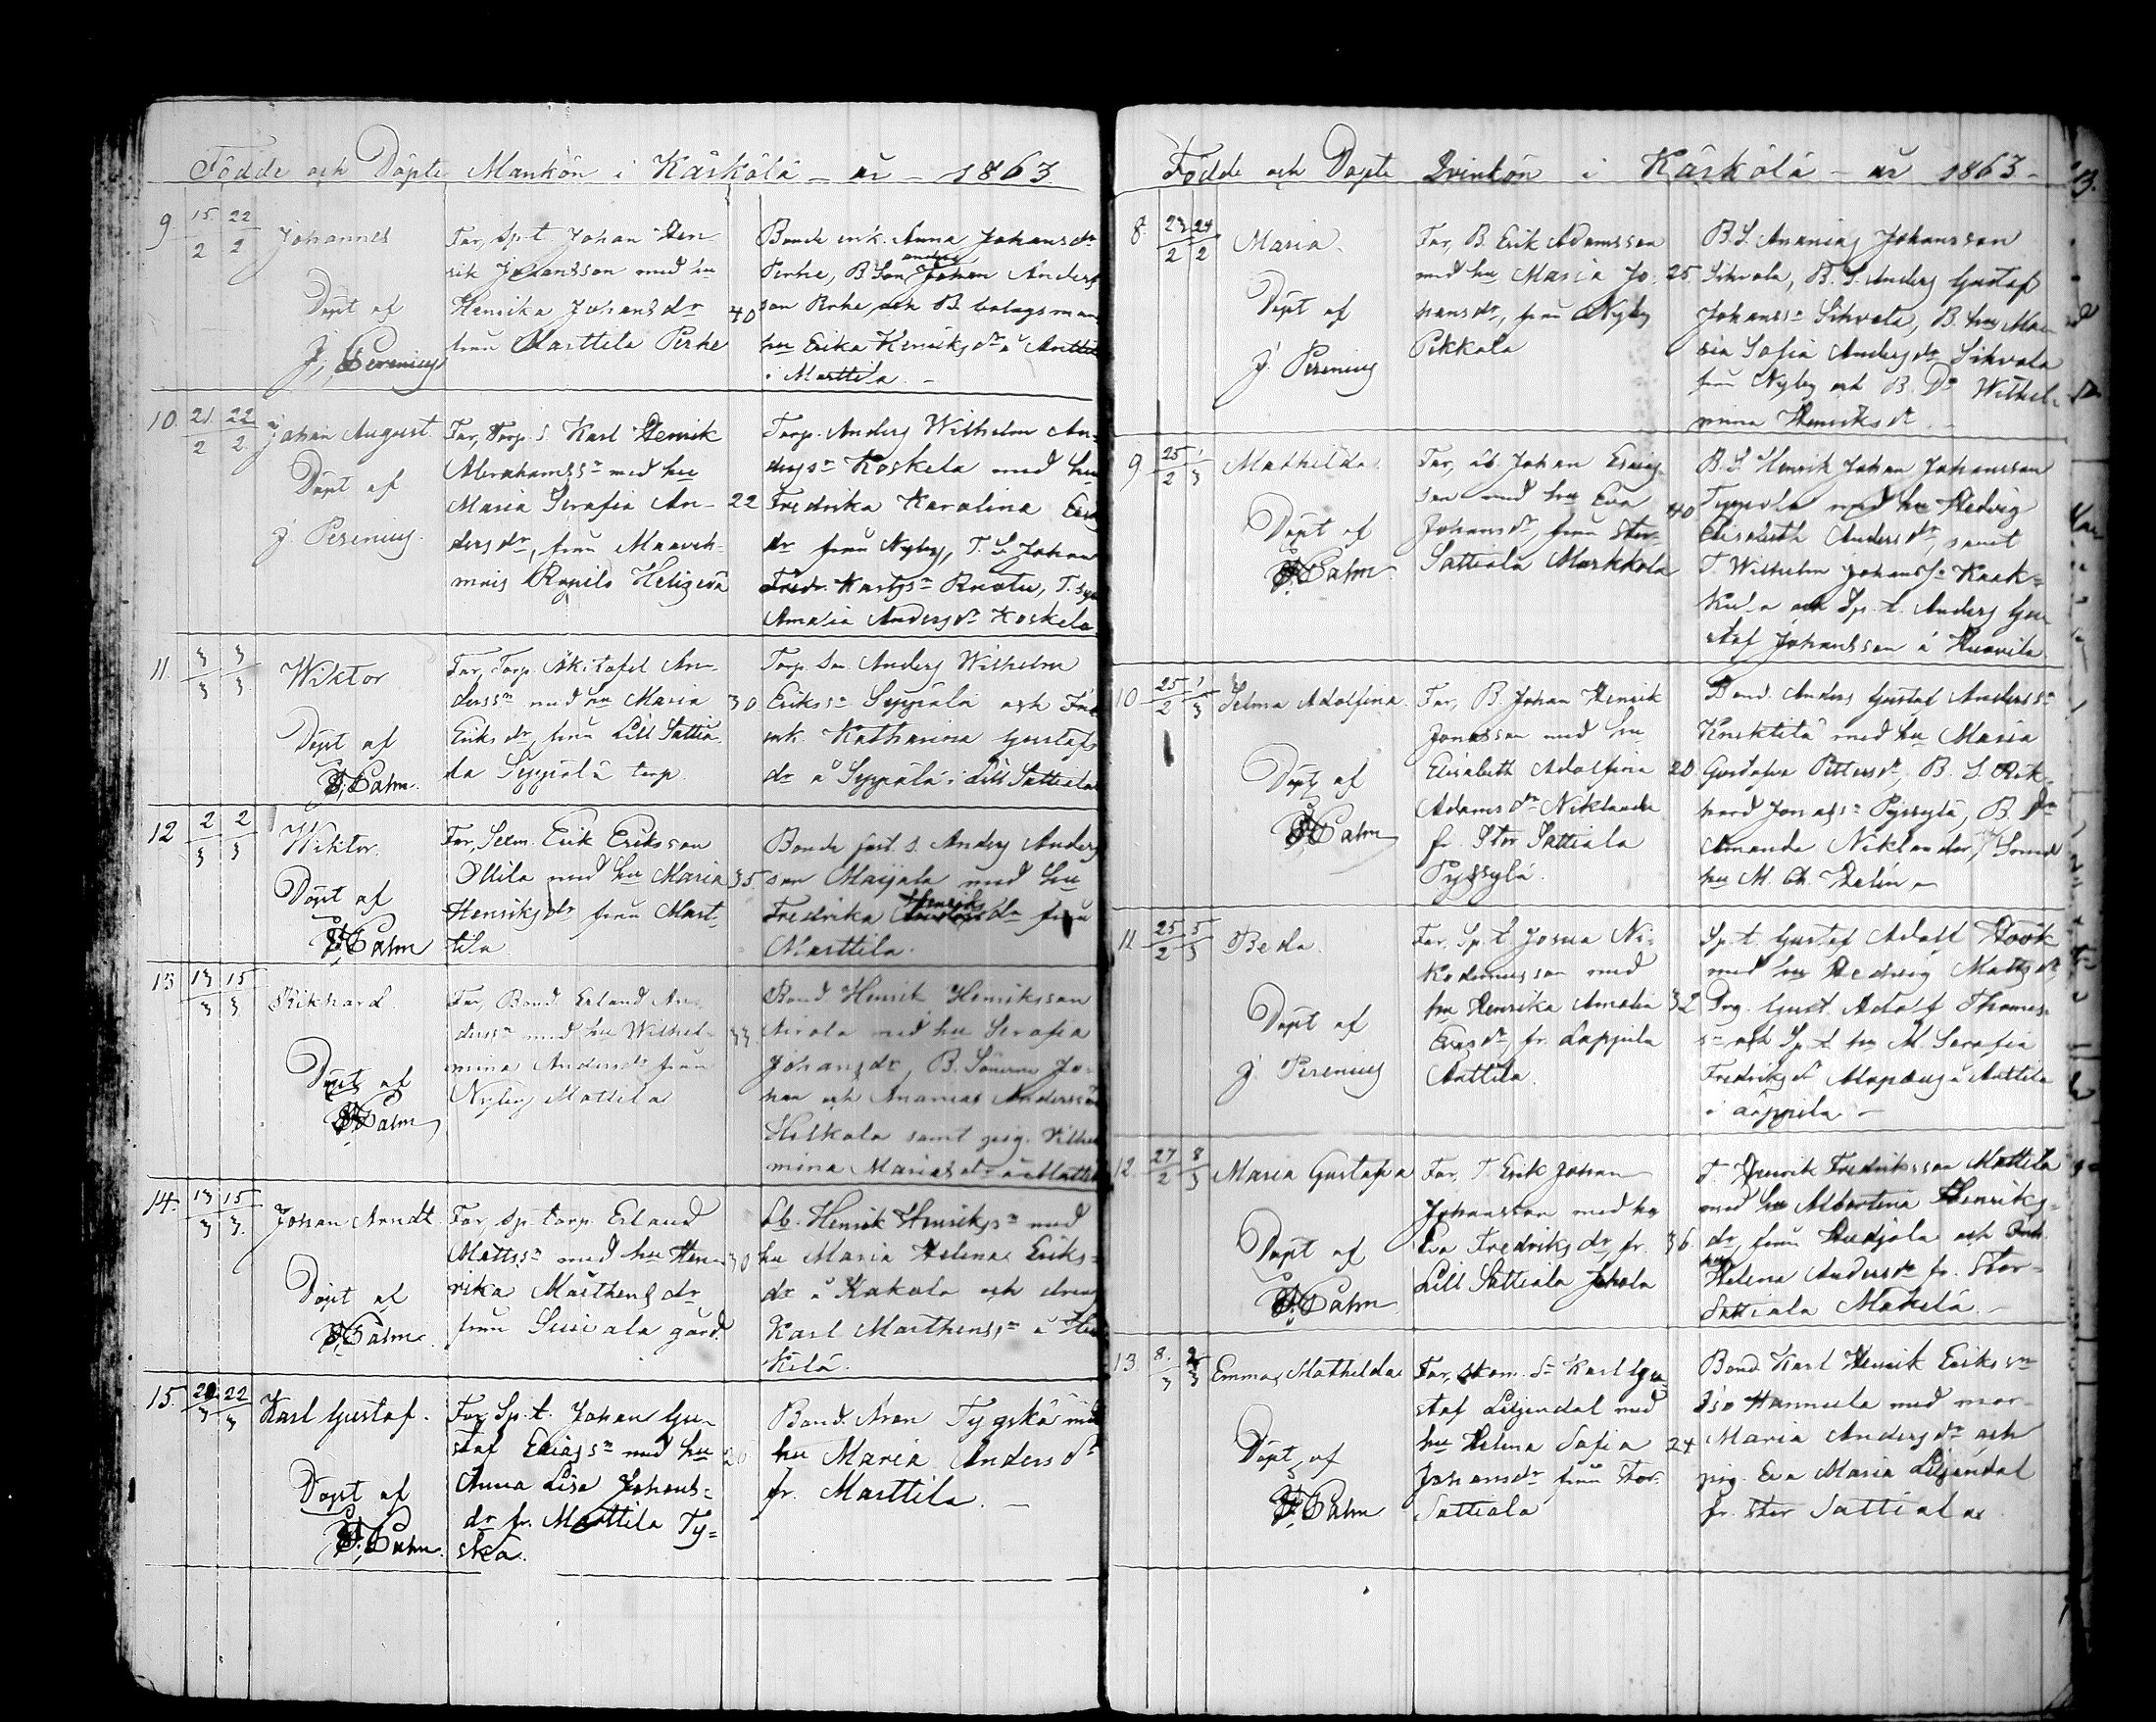 Födde och Döpte Mankön i Kärkölä – år – 1863
9 15/2 22/2 Johannes
Döpt af
J. Perenius
Far, Sp.t. Johan Hen-
rik Johansson med hu
Henrika Johansdr
från Marttila Perhe
40
Bonde enk. Anna Johansdr
Perhe, B Son Johan Anders
son Perhe, och B. bolagsman
hu Erika Henriksdr å Anttila
i Marttila. –
10. 21/2 22/2 Johan August
Döpt af
J. Perenius.
Far, Torp. s. Karl Henrik
Abrahamssn med hu
Maria Serafia An-
dersdr, från Maaveh-
mais Rapila
22
Torp. Anders Wilhelm An-
derssn Koskela med hu
Fredrika Karolina
dr från Nyby, T. S. Johan
Fredr. Karlssn T.
Amalia Andersdr Koskela
11. 3/3 3/3 Wiktor
Döpt af
Palm.
Far, Torp. An-
derssn med hu Maria
Eriksdr, från Lill Sattia-
la Seppälä torp.
30
Torp. Son Anders Wilhelm
Erikssn Seppälä och
enk. Katharina Gustafs
dr å Seppälä i Lill Sattiala
12 2/3 2/3 Wiktor.
Döpt af
Palm
Far, Erik Eriksson
Ollila med hu Maria
Henriksdr från Mart-
tila.
35
Bonde s. Anders Anders
son Maijala med hu
Fredrika Henriksdr från
Marttila.
13 13/3 15/3 Rikhard
Döpt af
Palm
Far, Bond. Erland An-
derssn med hu Wilhel-
mina Andersdr från
Nyby Mattila
33
Bond. Henrik Henriksson
med hu Serafia
Johansdr, B. Sönerne Jo-
han och Ananias Andersson
samt pig. Wilhel
mina Mariasdr å Mattila
14. 13/3 15/3 Johan Arndt
Döpt af
Palm.
Far, sp. torp. Erland
Mattssn med hu Hen-
rika Marthensdr
från gård.
30
Henrik Henrikssn med
hu Maria Helena Eriks-
dr å Kakola och dreng
Karl Marthenssn å
kilä.
15. 20/3 22/3 Karl Gustaf.
Döpt af
Palm.
Far, Sp.t. Johan Gu-
staf Eliassn med hu
Anna Lisa Johans-
dr fr. Marttila Ty-
skä.
20
Bond. Aron Tyyskä med
hu Maria Andersdr
fr. Marttila. –
Födde och Döpte Qvinkön i Kärkölä – år 1863 –
8. 23/2 24/2 Maria.
Döpt af
J. Perenius
Far, B. Erik Adamsson
med hu Maria Jo-
hansdr, från Nyby
Pikkala
25
B.S. Ananias Johansson
Sihvola, B. S. Anders Gustaf
Johanssn Sihvola, B. hu Ma-
ria Sofia Andersdr Sihvola
från Nyby och B. Dr Wilhel-
mina Henriksdr
9 25/2 1/3 Mathilda
Döpt af
Palm
Far, Johan Esaias-
son med hu Eva
Johansdr, från Stor-
Sattiala Markkola
40
B.S. Henrik Johan Johansson
med hu Hedvig
Elisabeth Andersdr, samt
T. Wilhelm Johanssn Kaak-
och Sp.t. Anders Gu-
staf Johansson å
10 25/2 1/3 Selma Adolfina
Döpt af
Palm
Far, B. Johan Henrik
Jonasson med hu
Elisabeth Adolfina
Adamsdr Niklander
fr. Stor Sattiala
Pyssylä.
20
Bond. Anders Gustaf Anderssn
med hu Maria
Gustafva Pettersdr, B. S. Rik-
hard Jonassn Pyssylä, B. Dr
Amanda Niklander,
hu M. Ch. Helin –
11 25/2 5/3 Beda.
Döpt af
J. Perenius
Far, Sp.t. Josua Ni-
kodemusson med
hu Henrika Amalia
Eriksdr, fr. Lappila
Anttila.
32
Sp.t. Gustaf Adolf Höök
med hu Hedvig Mattsdr
Drg. Gust. Adolf Thomas-
sn och Sp.t. hu M. Serafia
Fredriksdr å Anttila
i Lappila –
12. 27/2 8/3 Maria Gustafva
Döpt af
Palm
Far, T. Erik Johan
Johansson med hu
Eva Fredriksdr fr.
Lill Sattiala Jokela
36
T. Henrik Fredriksson Mattila
med hu Albertina Henriks-
dr, från Hutjala och
Helena Andersdr fr. Stor-
Sattiala Mäkelä
13. 8/3 Emma Mathilda
Döpt af
Palm
Far, skom. Sn Karl Gu-
staf Liljendal med
hu Helena Sofia
Johansdr från Stor-
Sattiala
24
Bond. Karl Henrik Erikssn
Iso Hannula med mor
Maria Andersdr och
pig. Eva Maria Liljendal
fr. Stor Sattiala